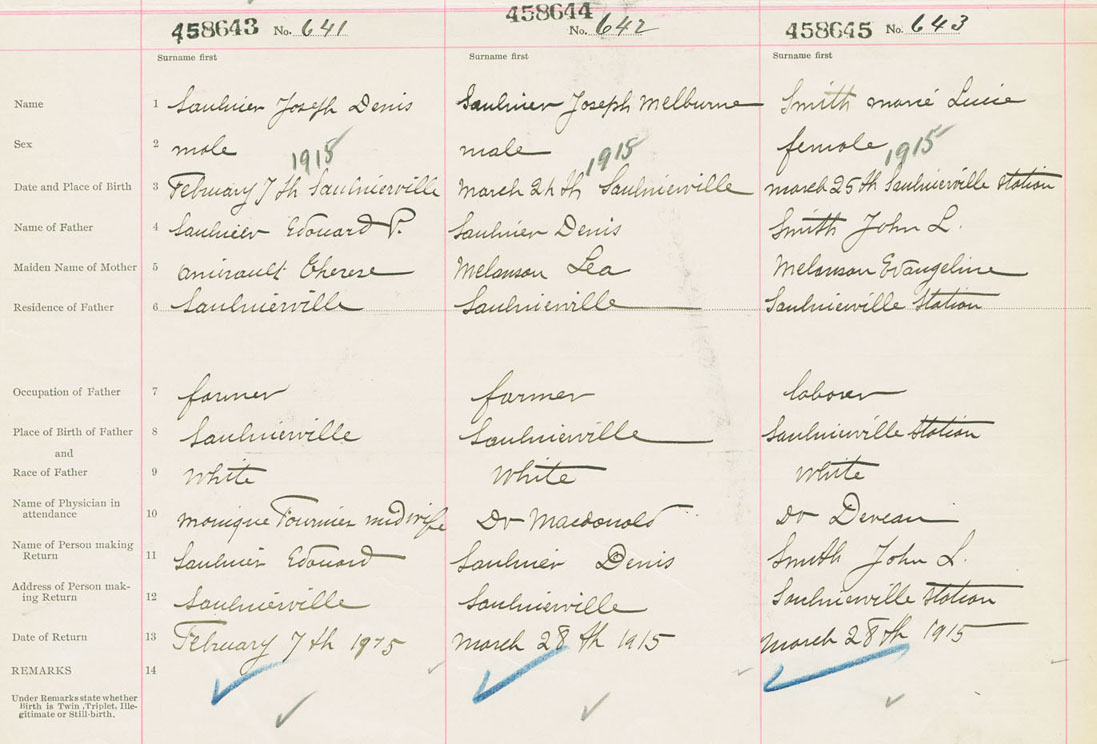 458643 No. 641 458644 No. 642 458645 No. 643
Surname first Surname first Surname first
Name 1 Saulnier Joseph Denis Saulnier Joseph Melburne Smith marie Lucie
Sex 2 male male female
1915 1915 1915
Date and Place of Birth 3 February 7th Saulnierville march 24th Saulnierville march 25th Saulnierville Station
Name of Father 4 Saulnier Edouard P. Saulnier Denis Smith John L.
Maiden Name of Mother 5 Amirault Therese Melanson Lea Melanson Evangeline
Residence of Father 6 Saulnierville Saulnierville Saulnierville Station
Occupation of Father 7 farmer farmer laborer
Place of Birth of Father 8 Saulnierville Saulnierville Saulnierville Station
and
Race of Father 9 White White White
Name of Physician in
attendance 10 monique Fournier midwife Dr Macdonald Dr Deveau
Name of Person making
Return 11 Saulnier Edouard Saulnier Denis Smith John L.
Address of Person mak-
ing Return 12 Saulnierville Saulnierville Saulnierville Station
Date of Return 13 February 7th 1915 march 28th 1915 march 28th 1915
REMARKS 14
Under Remarks state whether
Birth is Twin, Triplet, Ille-
gitimate or Still-birth.